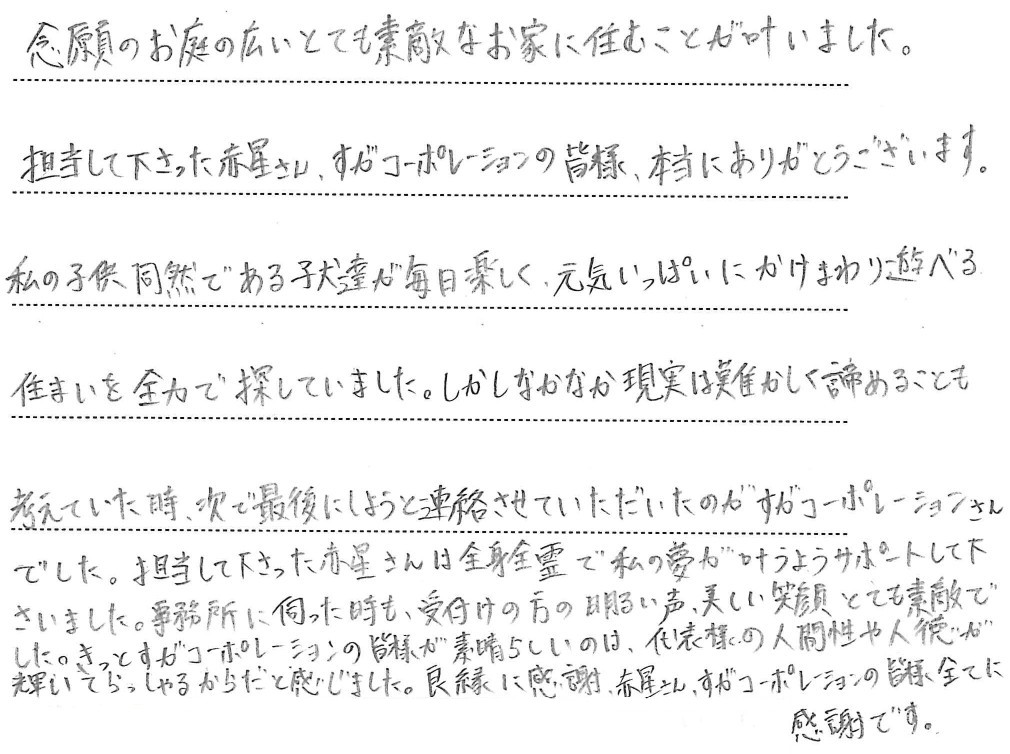 念願のお庭の広いとても素敵なお家に住むことが叶いました。
担当して下さった赤星さん、すがコーポレーションの皆様、本当にありがとうございます。
私の子供同然である子犬達が毎日楽しく、元気いっぱいにかけまわり遊べる
住まいを全力で探していました。しかしなかなか現実は難かしく諦めることも
考えていた時、次で最後にしようと連絡させていただいたのがすがコーポレーションさん
でした。担当して下さった赤星さんは全身全霊で私の夢が叶うようサポートして下
さいました。事務所に伺った時も、受付けの方の明るい声、美しい笑顔とても素敵で
した。きっとすがコーポレーションの皆様が素晴らしいのは、代表様の人間性や人徳が
輝いてらっしゃるからだと感じました。良縁に感謝、赤星さん、すがコーポレーションの皆様全てに
感謝です。